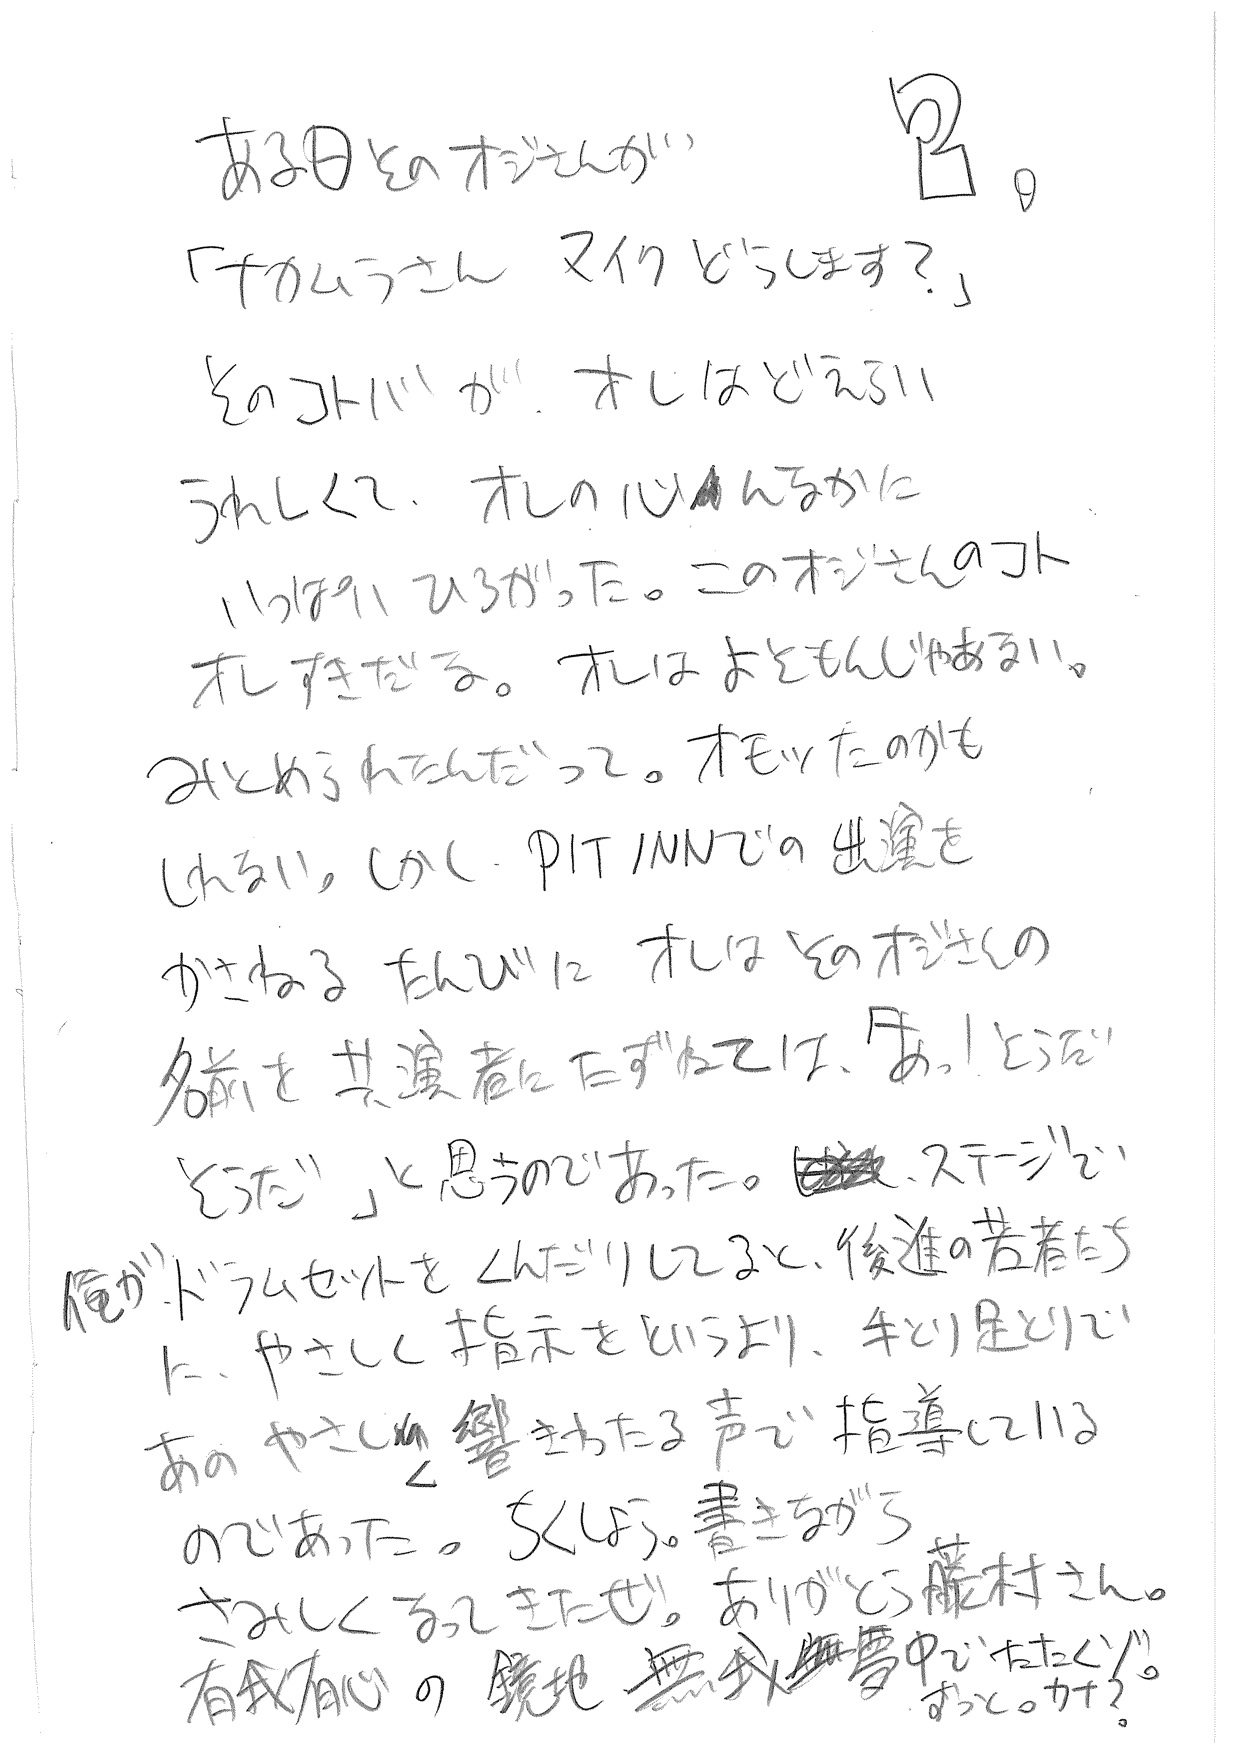 2.
ある日そのオジさんが
「ナカムラさん マイクどうします?」
そのコトバが、オレはどえらい
うれしくて、オレの心んなかに
いっぱいひろがった。このオジさんのコト
オレすきだな。オレはよそもんじゃあない。
みとめられたんだって。オモッたのかも
しれない。しかし、PIT INNでの出演を
かさねるたんびに オレはそのオジさんの
名前を共演者にたずねては、「あっ!そうだ
そうだ」と思うのであった。、ステージで
俺がドラムセットをくんだりしてると、後進の若者たち
に、やさしく指示をというより、手とり足とりで
あの やさしく響きわたる声で指導している
のであった。ちくしょう。書きながら
さみしくなってきたぜ。ありがとう藤村さん。
有我有心の鏡地 無我夢中でたたくゾ。
ずっと。カナ?